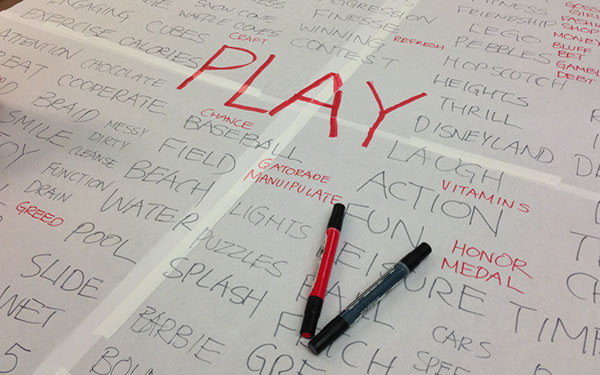 SNOW CONE
AGGRESSION
FITNESS
GOSS
ENGAGING
CUBES
WAFFLE CONES
FINESSE
FRIENDSHIP
GIRL
FASHI
SHOP
EXERCISE
CALORIES
CRAFT
WINNING
REFRESH
LEGO
MONEY
ATTENTION
CHOCOLATE
CONTEST
PEBBLES
BLUFF
BET
GREAT
COOPERATE
PLAY
HOPSCOTCH
GAMBL
DEBT
BRAID
MESSY
CHANCE
HEIGHTS
SMILE
DIRTY
BASEBALL
THRILL
TOY
CLEANSE
FIELD
GATORADE
LAUGH
DISNEYLAND
FUNCTION
BEACH
MANUIPULATE
ACTION
VITAMINS
DRAIN
WATER
LIGHTS
FUN
GREED
POOL
PUZZLES
LEISURE
HONOR
MEDAL
SLIDE
SPLASH
BALL
TIME
WET
BARBIE
FETCH
CARS
5
BOUN
GRE
SPEE